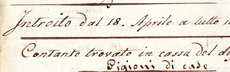 Introito dal 18. Aprile a tutto il
Contante trovato in cassa del de
Pigioni di case